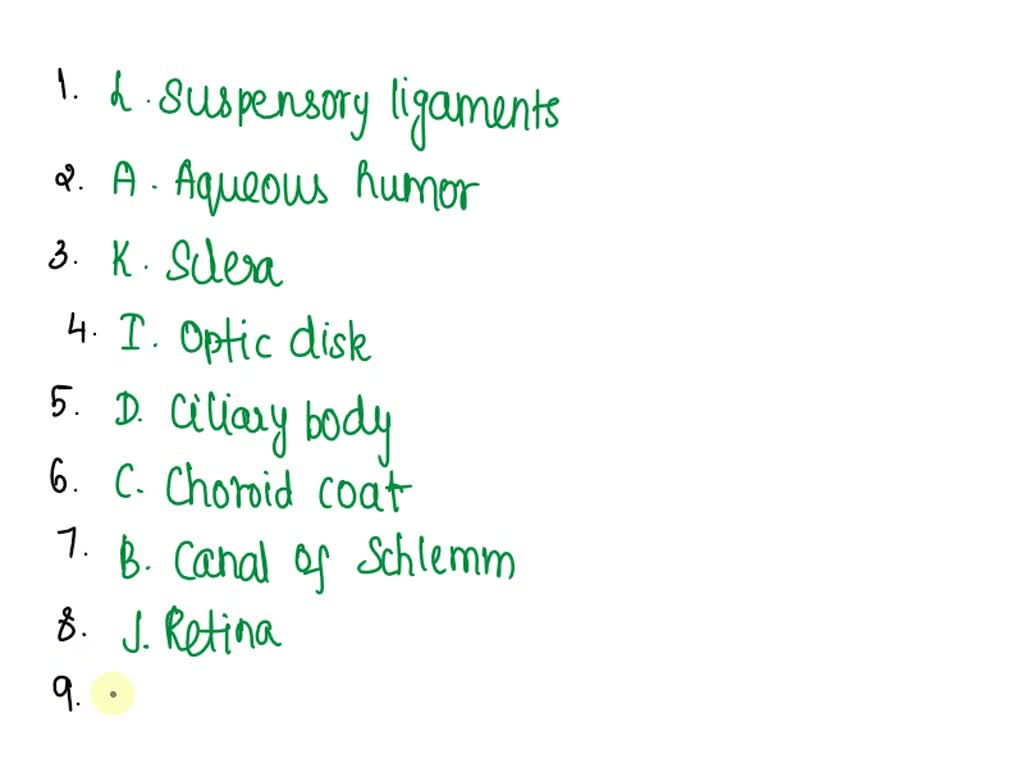 1. L. Suspensory ligaments
2. A. Aqueous humor
3. K. Sclera
4. I. Optic disk
5. D. Ciliary body
6. C. Choroid coat
7. B. Canal of Schlemm
8. J. Retina
9.